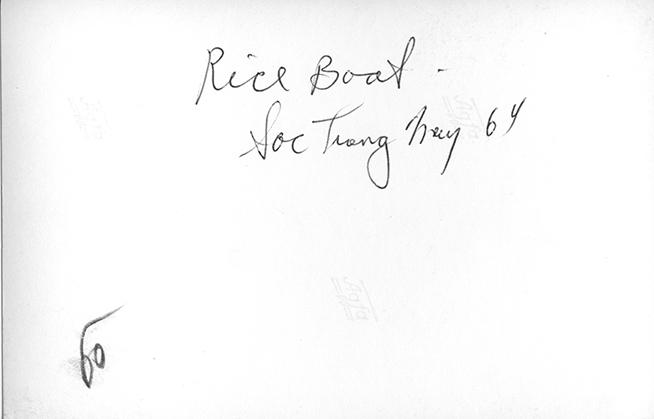 Rice Boat -
Soc Trang May 64
60